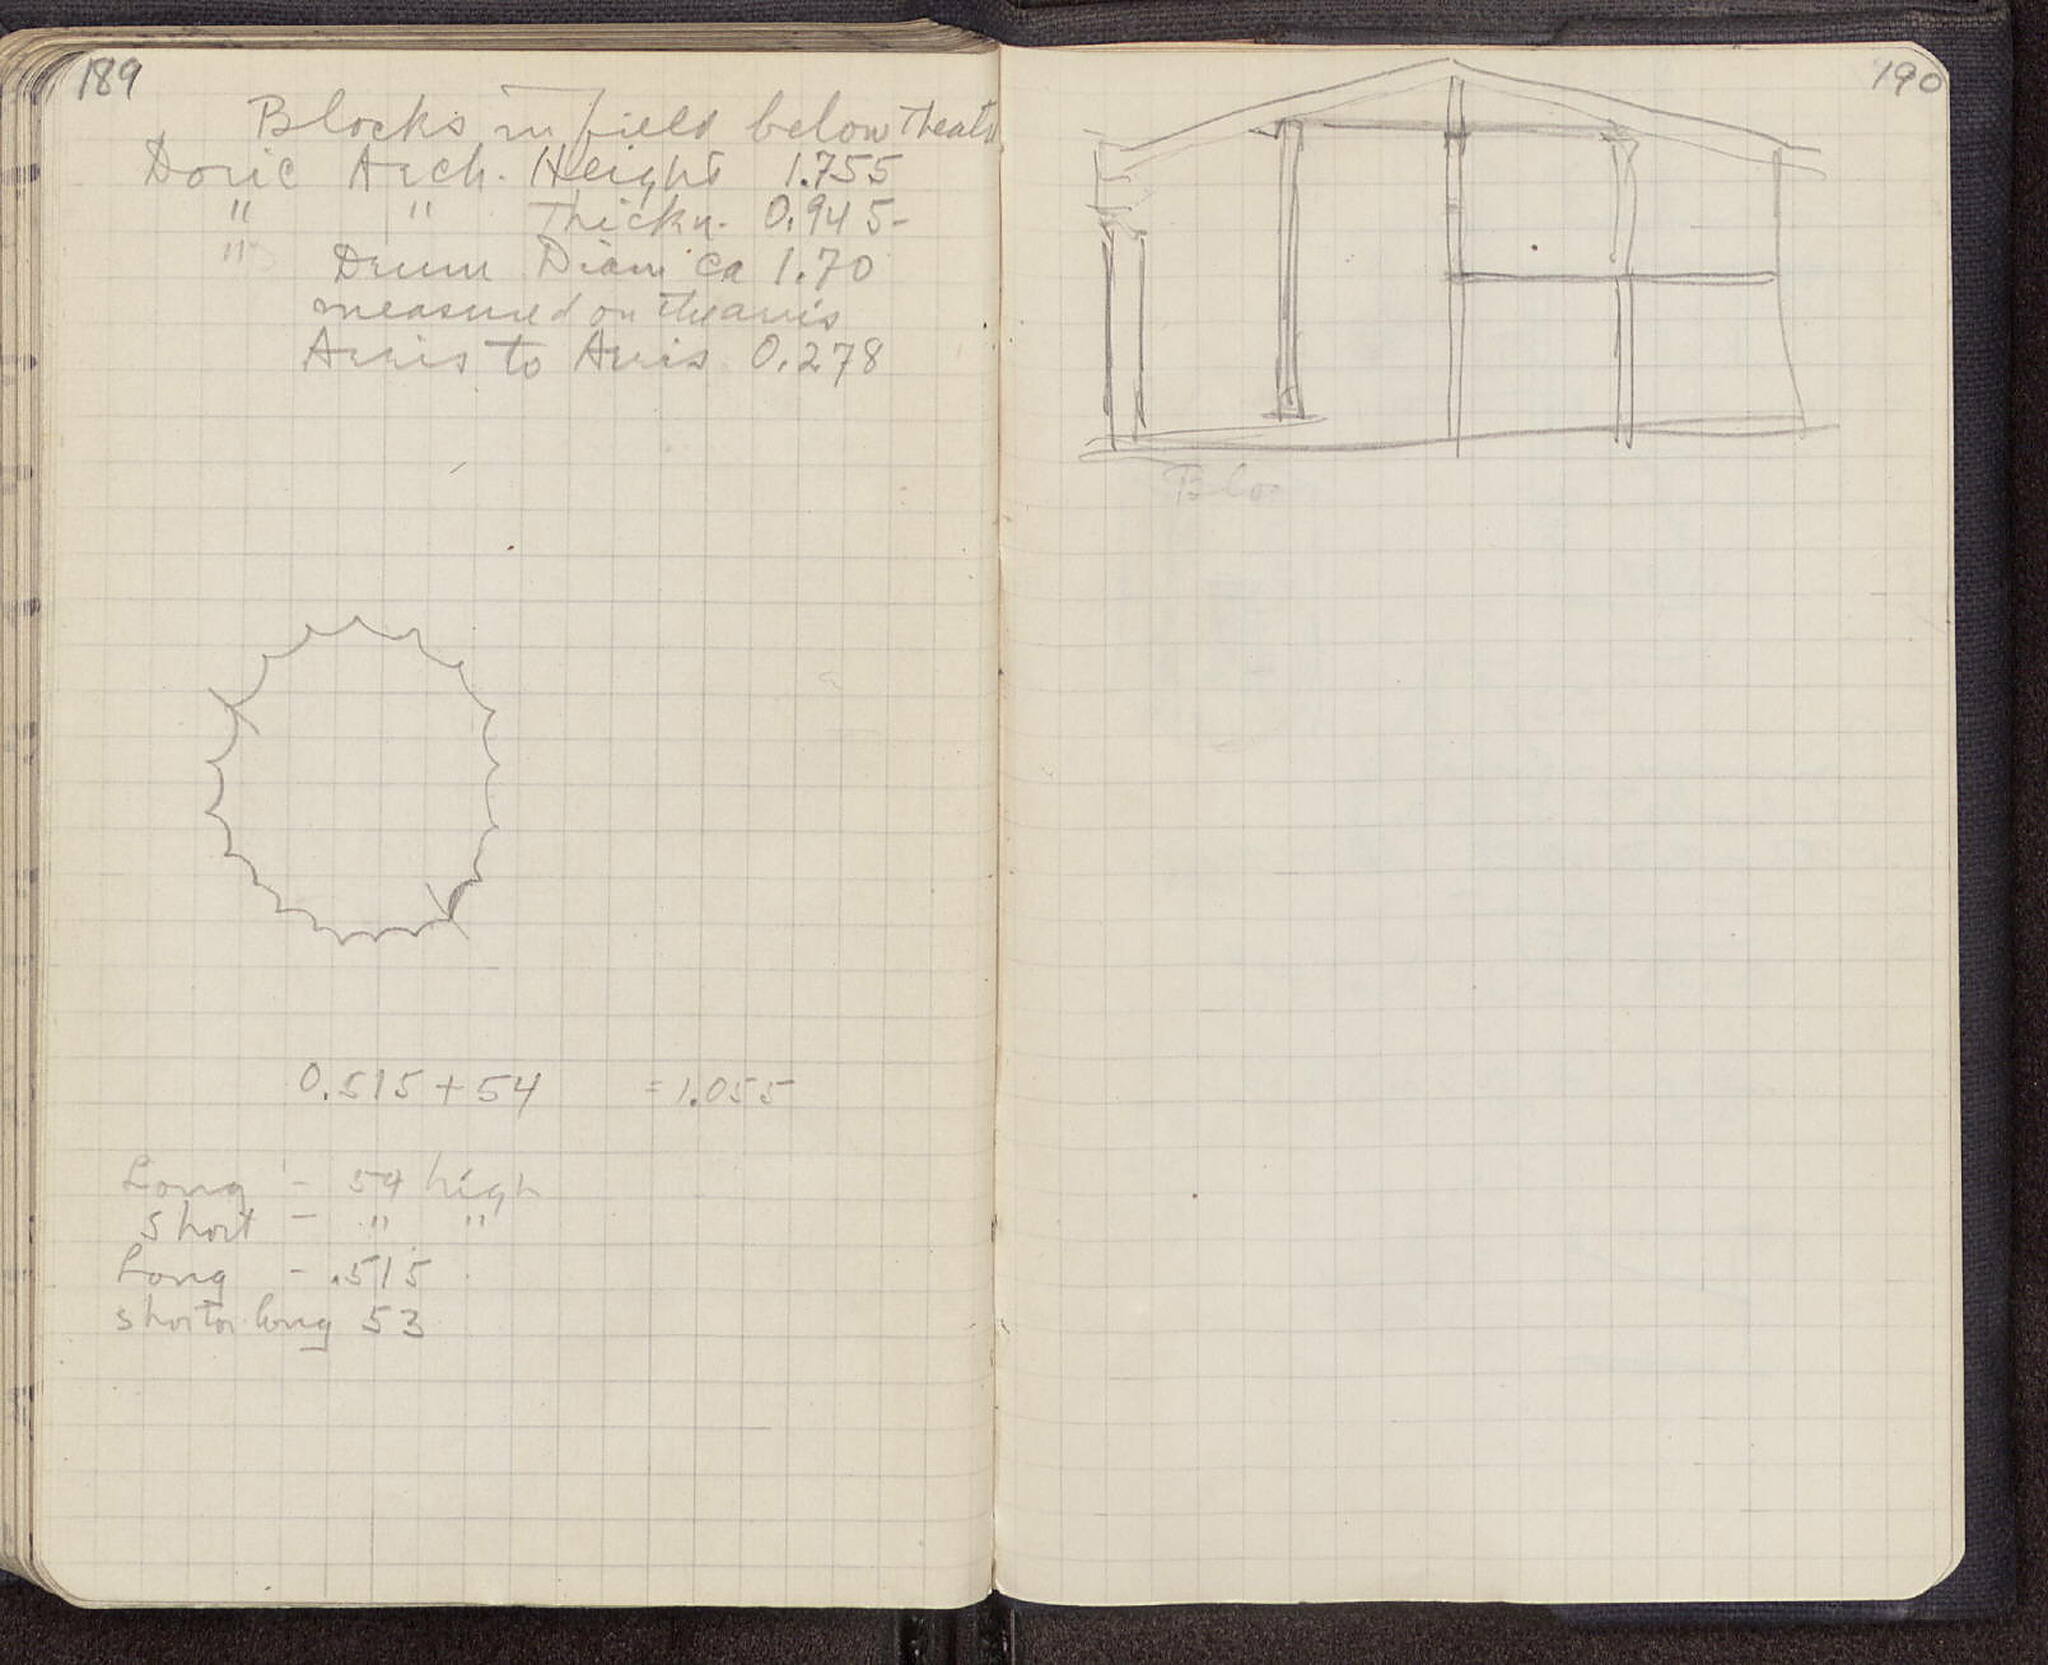 189
Blocks in field below Theatre
Doric Arch. Height 1.755
" " Thickn. 0.945-
" Drum Diam ca 1.70
measured on the arris
Arris to Arris 0.278
0.515 + 54 = 1.055
Long - 54 high
Short - " "
Long - .515
Short or long 53
190
Blo